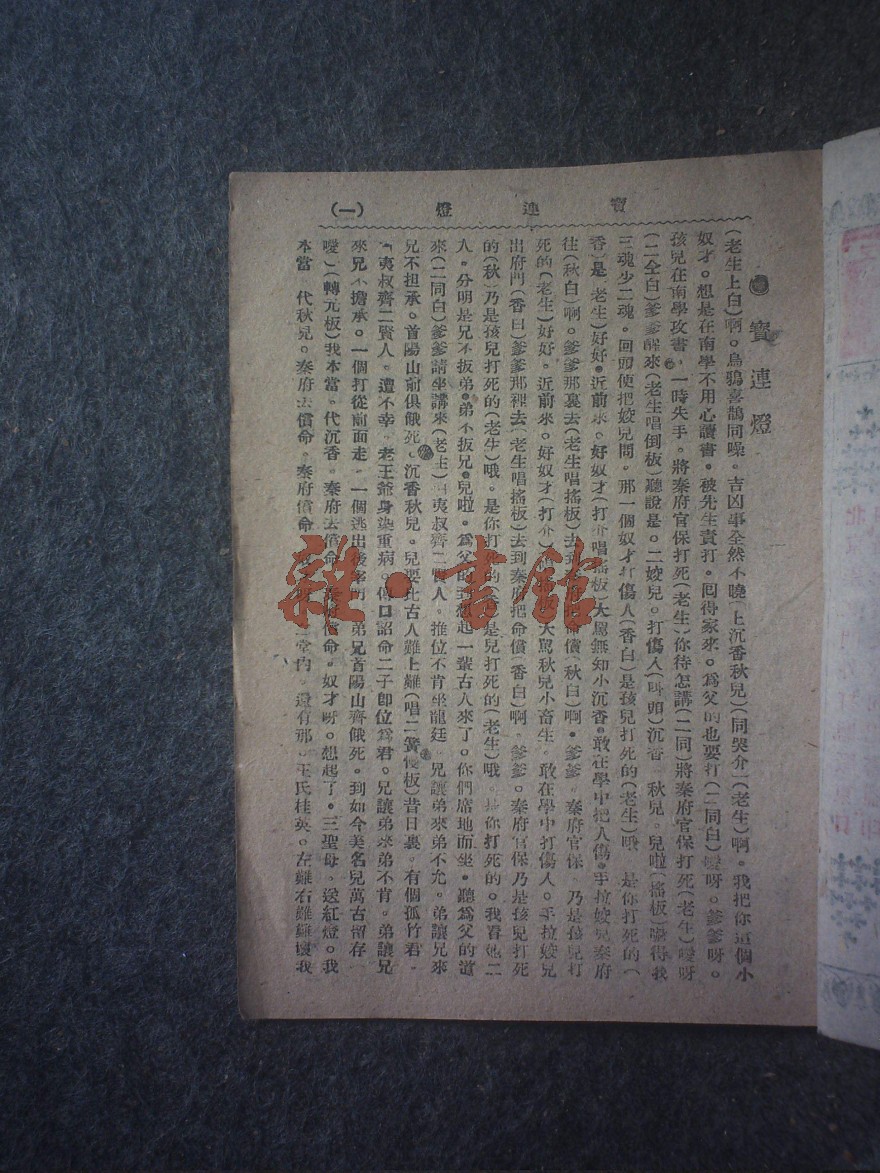 寶連燈 (一)
寶連燈
(老生上白)啊。烏鴉喜鵲同噪。吉凶事全然不曉(上沉香秋兒)(同哭介)(老生)啊。我把你這個小
奴才。想是在南學不用心讀書。被先生責打。回得家來。爲父的也要打(二同白)噯呀。爹爹呀。
孩兒在南學攻書。一時失手。將秦府官保打死(老生)你待怎講(二同)將秦府官保打死(老生)噯呀
(二仝白)爹爹醒來(老生唱倒板)聽說是。二姣兒。打傷人(叫頭)沉香。秋兒。兒啦(搖板)嚇得我
三魂少二魂。回頭便把姣兒問。那一個奴才打傷人(香白)是孩兒打死的(老生)哦。是你打死的(
香)是(老生)好好。近前來。好奴才(打介唱搖板)大罵無知小沉香。敢在學中把人傷。手拉姣兒秦府
往(秋白)啊。爹爹那裏去(老生唱搖板)去到 命償(秋白)啊。爹爹。秦府官保。乃是孩兒打
死的(老生)好好。近前來。好奴才(打介) 大罵秋兒小畜生。敢在學中打傷人。手拉姣兒
出府門(香白)爹爹那裡去(老生唱搖板)去到秦府把命償(香白)啊。爹爹。秦府官保乃是孩兒打死
的(秋)乃是孩兒打死的(老生)哦。是你打死的 是兒打死的(老生)哦。是你打死的。我看她二
人。分明是兄不扳弟。弟不扳兄。兒啦。爲父的 想起一輩古人來了。你們席地而坐。聽爲父的道
來(二同白)爹爹請坐講來(老生) 夷叔齊二賢人。推位不肯坐龍廷。兄讓弟來弟不允。弟讓兄來
兄不担承。首陽山前俱餓死。沉香秋兒。兒要比古人難上難(唱二簧慢板)昔日裏。有個孤竹君。
夷叔齊二賢人。遭不幸。老王爺身染重病。傳口詔命二子卽位爲君。兄讓弟來弟不肯。弟讓兄
來兄不擔承。一個打從前面走。一個逃出後 弟兄首陽山齊餓死。到如今美名兒萬古留存
噯)(轉元板)我本當。代沉香。秦府去償命。 償命。奴才呀。想起了。三聖母。送紅燈。我
本當 代秋兒。秦府去償命。秦府償命 堂內。還有那。王氏桂英。左難右難難壞我
雜·書館